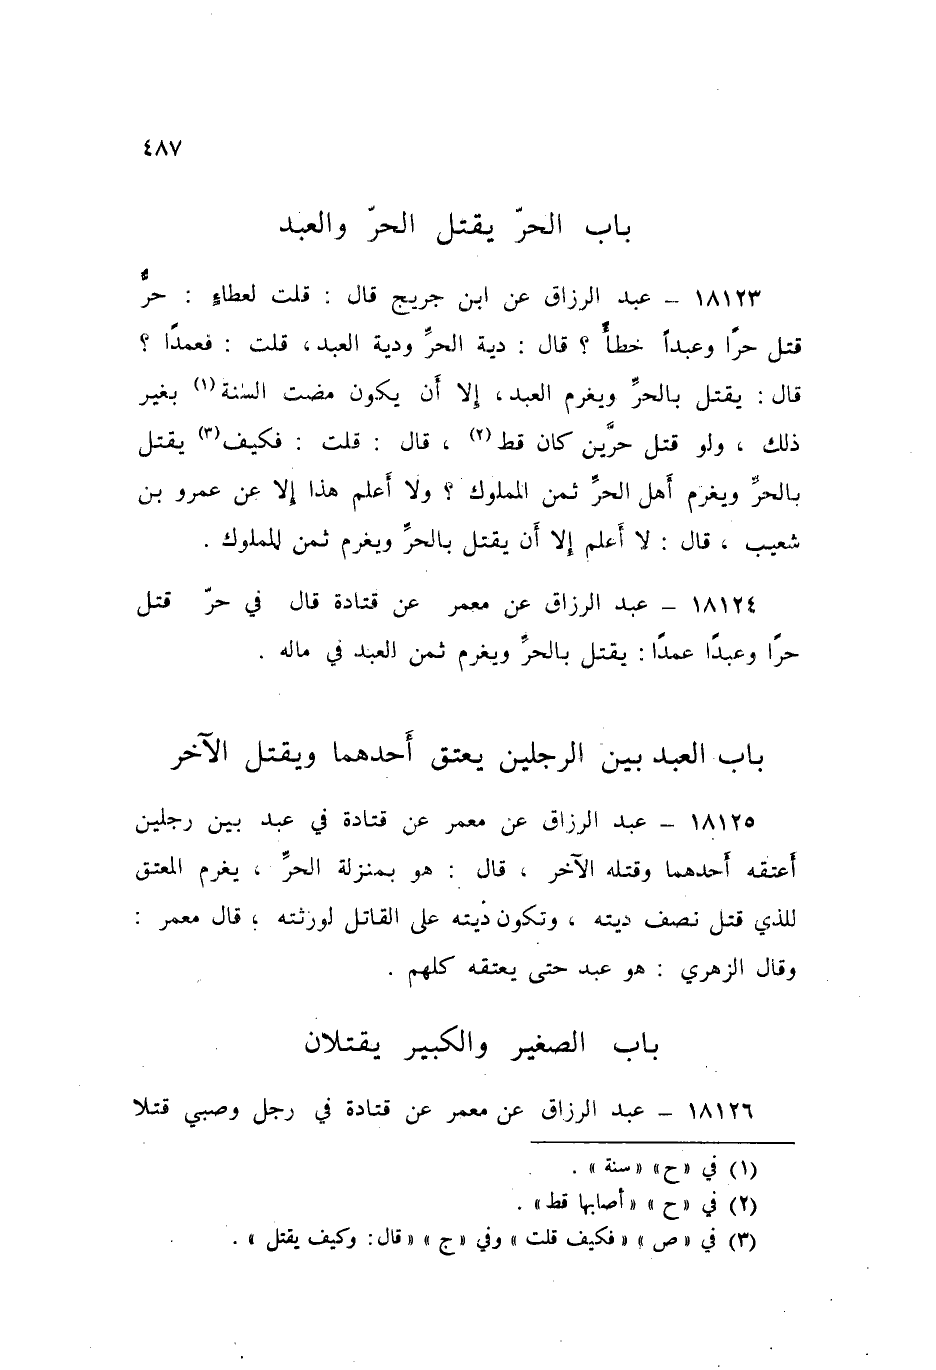 ٤٨٧
باب الحرّ يقتل الحرّ والعبد
١٨١٢٣ – عبد الرزاق عن ابن جريج قال : قلت لعطاءٍ : حرٌّ
قتل حرًا وعبداً خطأً ؟ قال : دية الحرِّ ودية العبد، قلت : فعمدًا ؟
قال : يقتل بالحرِّ ويغرم العبد، إلا أن يكون مضت السنة (١) بغير
ذلك ، ولو قتل حرَّين كان قط (٢) ، قال : قلت : فكيف (٣) يقتل
بالحرِّ ويغرم أهل الحرِّ ثمن المملوك ؟ ولا أعلم هذا إلا عن عمرو بن
شعيب ، قال : لا أعلم إلا أن يقتل بالحرِّ ويغرم ثمن المملوك .
١٨١٢٤ – عبد الرزاق عن معمر عن قتادة قال في حرّ قتل
حرًا وعبدًا عمدًا : يقتل بالحرِّ ويغرم ثمن العبد في ماله .
باب العبد بين الرجلين يعتق أحدهما ويقتل الآخر
١٨١٢٥ – عبد الرزاق عن معمر عن قتادة في عبد بين رجلين
أعتقه أحدهما وقتله الآخر ، قال : هو بمنزلة الحرِّ ، يغرم المعتق
للذي قتل نصف ديته ، وتكون ديته على القاتل لورثته ، قال معمر :
وقال الزهري : هو عبد حتى يعتقه كلهم .
باب الصغير والكبير يقتلان
١٨١٢٦ – عبد الرزاق عن معمر عن قتادة في رجل وصبي قتلا
(١) في «ح» «سنة» .
(٢) في «ح» «أصابها قط» .
(٣) في «ص» «فكيف قلت» وفي «ح» «قال : وكيف يقتل» .